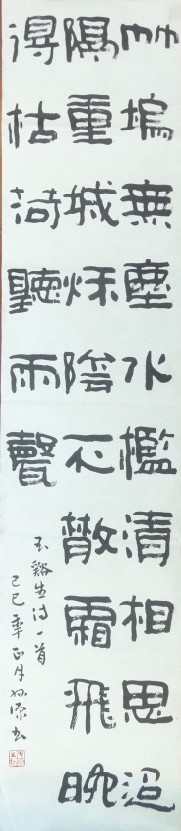 竹塢無塵水檻清相思迢
隔重城秋陰不散霜飛晚
得枯荷聽雨聲
玉谿生诗一首
己巳年正月